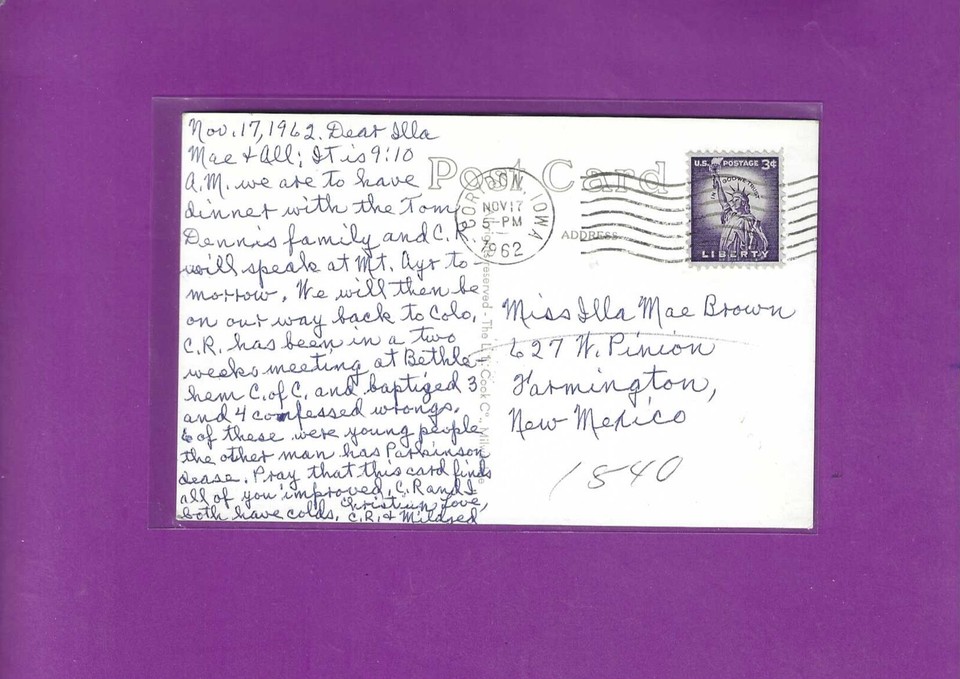 Nov. 17, 1962. Dear Illa
Mae & All; It is 9:10
A.M. we are to have
dinner with the Tom
Dennis family and C.R.
will speak at Mt. Ayr to
morrow. We will then be
on our way back to Colo.
C.R. has been in a two
weeks meeting at Bethle-
hem C. of C. and baptized 3
and 4 confessed wrongs.
6 of these were young people
the other man has Parkinson
dease. Pray that this card finds
all of you improved. C.R and I
both have colds. Christian Love,
C.R. & Mildred
Post Card
ADDRESS
CORYDON, IOWA
NOV 17
5-PM
1962
U.S. POSTAGE 3¢
IN GOD WE TRUST
LIBERTY
Miss Illa Mae Brown
627 W. Pinion
Farmington,
New Mexico
1540
reserved - The L. L. Cook Co., Milwaukee